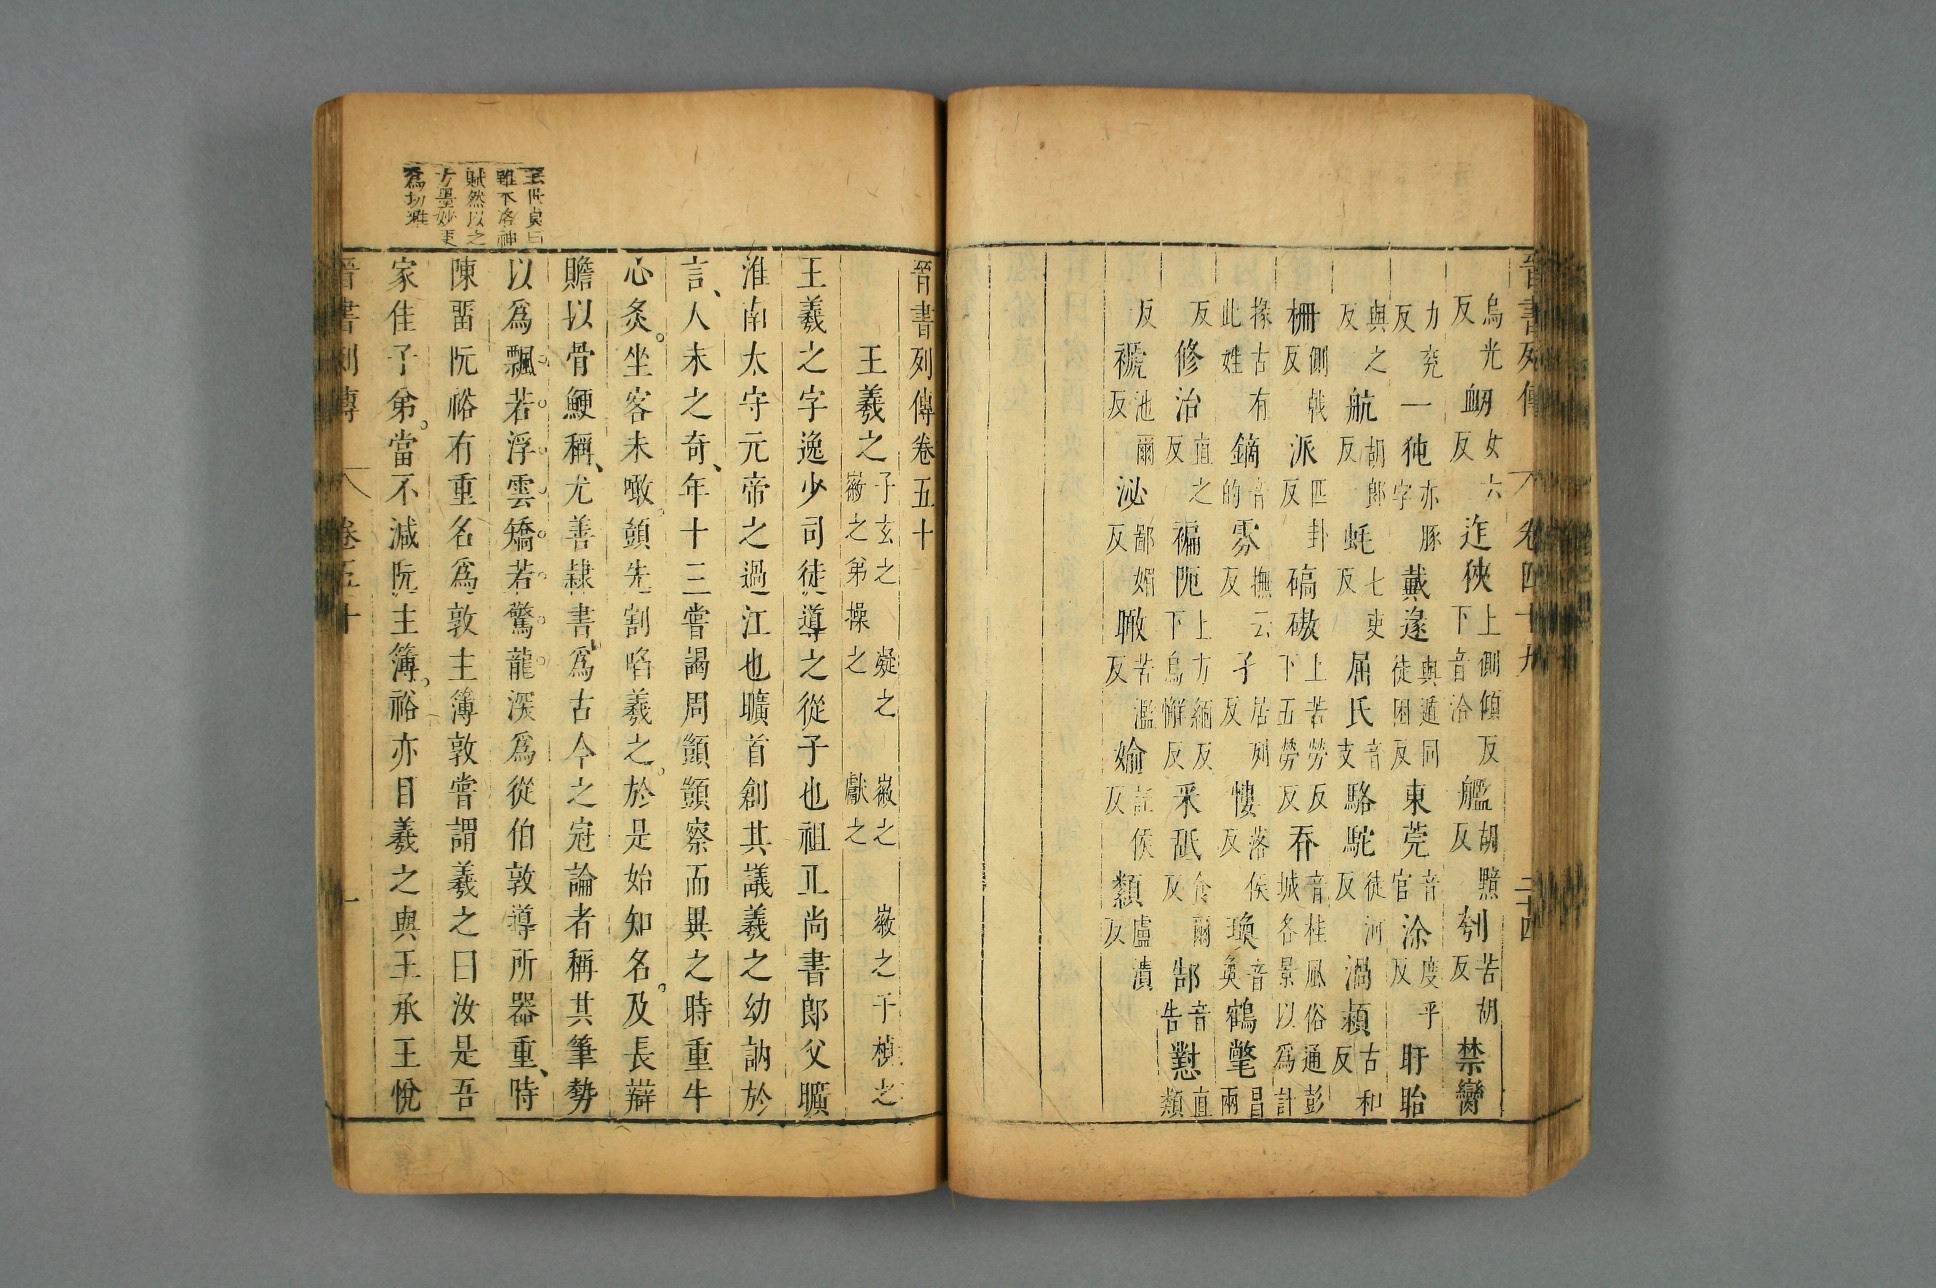 晉書列傳 卷四十九 二十四
烏光反 衂女六反 迮狹上側傾反下音洽 艦胡黯反 刳苦胡反 禁臠
力兖反 一㹠亦豚字 戴逯與遁同徒困反 東莞音官 涂度乎反 盱眙
與之反 航胡郎反 蚝七吏反 屈氏音支 駱駝徒河反 渦潁古和反
栅側戟反 派匹卦反 碻磝上苦勞反下五勞反 吞音桂風俗通彭城各景以爲計
掾古有此姓 鏑音的 雰撫云反 孑居列反 慺落侯反 瑍音奐 鶴氅昌兩
反 修治直之反 褊阨上方緬反下烏懈反 釆舐食爾反 郜音告 懟直類
反 褫池爾反 泌鄙媚反 瞰苦濫反 媮託侯反 纇盧潰反
晉書列傳卷五十
王羲之子玄之 凝之 徽之 徽之子楨之 徽之弟操之 獻之
王羲之字逸少司徒導之從子也祖正尚書郎父曠
淮南太守元帝之過江也曠首創其議羲之幼訥於
言、人未之奇、年十三嘗謁周顗顗察而異之時重牛
心炙。坐客未噉。顗先割啗羲之。於是始知名。及長辯
贍以骨鯁稱、尤善隷書、爲古今之冠論者稱其筆勢
以爲飄若浮雲矯若驚龍深爲從伯敦導所器重、時
陳畱阮裕有重名爲敦主簿敦嘗謂羲之曰汝是吾
家佳子弟。當不減阮主簿。裕亦目羲之與王承王悅
王世貞曰
雖不洛神
賦然以之
方墨妙更
爲切雅
晉書列傳 卷五十 一